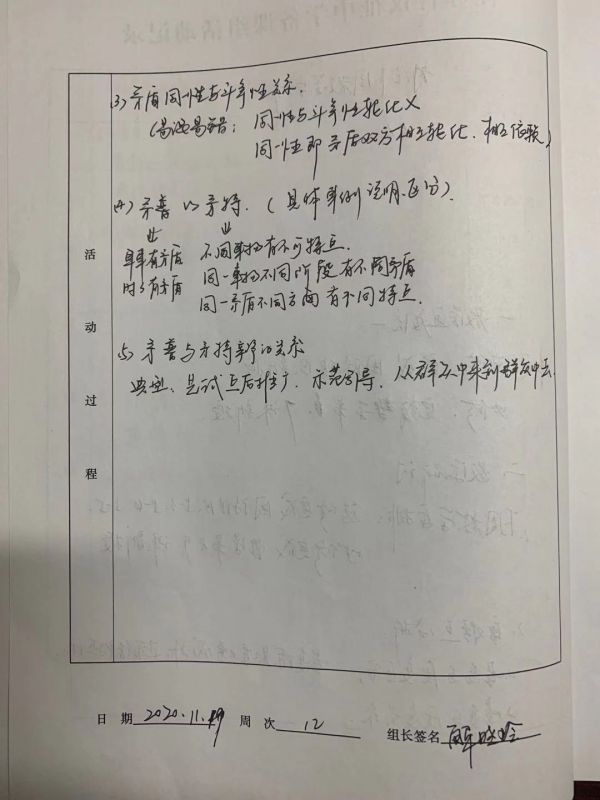 (3) 矛盾同一性与斗争性关系.
(易混易错: 同一性与斗争性转化×
同一性即矛盾双方相互转化、相互依赖)
(4) 矛普 vs 矛特. (具体事例说明、区分).
事事有矛盾 不同事物有不同特点.
时时有矛盾 同一事物不同阶段有不同矛盾
同一矛盾不同方面有不同特点.
(5) 矛普与矛特辩证关系
典型、先试点后推广、示范引导、从群众中来到群众中去.
活动过程
日 期 2020.11.19 周 次 12
组长签名